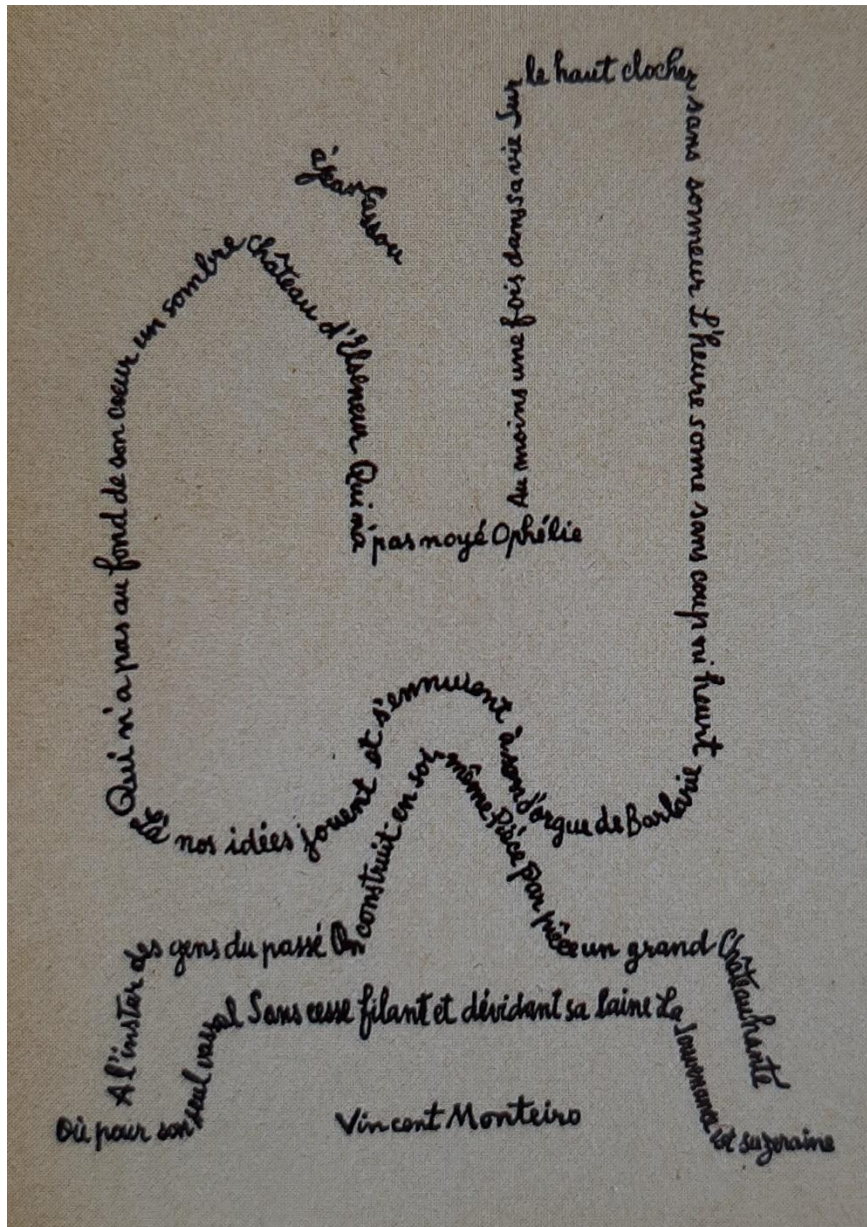 à Jean Cassou
Qui n'a pas au fond de son coeur un sombre château d'Elseneur Qui n'a pas noyé Ophélie
Au moins une fois dans sa vie Sur le haut clocher sans sonneur L'heure sonne sans coup ni heurt
Là nos idées jouent et s'ennuient à son d'orgue de Barbarie
A l'instar des gens du passé On construit en soi même Pièce par pièce un grand Château hanté
Où pour son seul vassal Sans cesse filant et dévidant sa laine La Souvenance est suzeraine
Vincent Monteiro